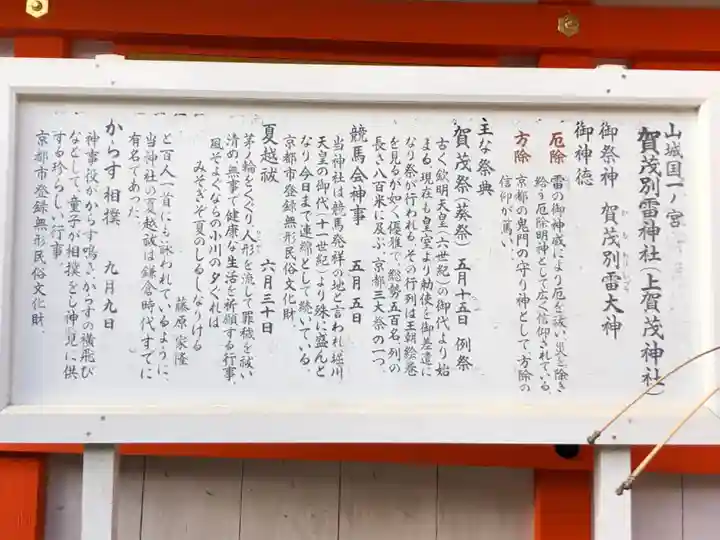 山城国一ノ宮
賀茂別雷神社（上賀茂神社）
御祭神 賀茂別雷大神
御神徳
厄除 雷の御神威により厄を祓い災を除き
給う厄除明神として広く信仰されている。
方除 京都の鬼門の守り神として、方除の
信仰が篤い。
主な祭典
賀茂祭（葵祭） 五月十五日 例祭
古く欽明天皇（六世紀）の御代より始
まる。現在も皇室より勅使を御差遣に
なり祭が行われる。その行列は王朝絵巻
を見るが如く優雅で、総勢五百名、列の
長さ八百米に及ぶ。京都三大祭の一つ。
競馬会神事 五月五日
当神社は競馬発祥の地と言われ、堀川
天皇の御代（十一世紀）より殊に盛んと
なり今日まで連綿として続いている。
京都市登録無形民俗文化財。
夏越祓 六月三十日
茅ノ輪をくぐり人形を流して罪穢を祓い
清め無事で健康な生活を祈願する行事。
風そよぐならの小川の夕ぐれは
みそぎぞ夏のしるしなりける
藤原家隆
と百人一首にも詠われているように、
当神社の夏越祓は鎌倉時代すでに
有名であった。
からす相撲 九月九日
神事役がからす鳴き、からすの横飛び
などをして、童子が相撲をし神覧に供
する珍らしい行事
京都市登録無形民俗文化財。